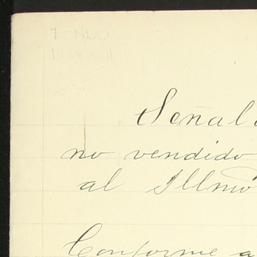 Señal
no vendido
al Illmo
Conforme a